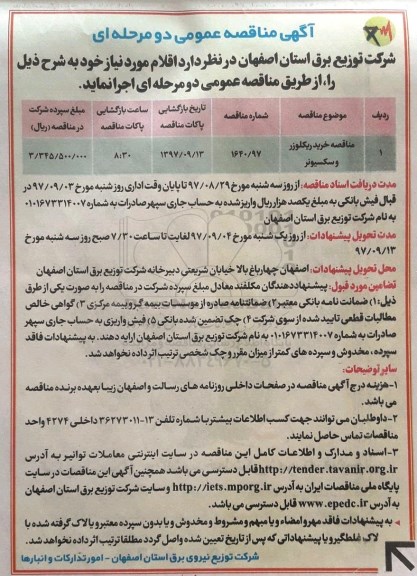 آگهی مناقصه عمومی دو مرحله ای
شرکت توزیع برق استان اصفهان در نظر دارد اقلام مورد نیاز خود به شرح ذیل
را، از طریق مناقصه عمومی دو مرحله ای اجرا نماید.
ردیف موضوع مناقصه شماره مناقصه تاریخ بازگشایی پاکات مناقصه ساعت بازگشایی پاکات مناقصه مبلغ سپرده شرکت در مناقصه (ریال)
۱ مناقصه خرید ریکلوزر و سکسیونر ۱۶۴۰/۹۷ ۱۳۹۷/۰۹/۱۳ ۸:۳۰ ۳/۳۴۵/۵۰۰/۰۰۰
مدت دریافت اسناد مناقصه: از روز سه شنبه مورخ ۹۷/۰۸/۲۹ تا پایان وقت اداری روز شنبه مورخ ۹۷/۰۹/۰۳ در
قبال فیش بانکی به مبلغ یکصد هزار ریال واریز شده به حساب جاری سپهر صادرات به شماره ۰۱۰۱۶۷۳۳۱۴۰۰۷
به نام شرکت توزیع برق استان اصفهان
مدت تحویل پیشنهادات: از روز یک شنبه مورخ ۹۷/۰۹/۰۴ لغایت تا ساعت ۷/۳۰ صبح روز سه شنبه مورخ
۹۷/۰۹/۱۳
محل تحویل پیشنهادات: اصفهان چهارباغ بالا خیابان شریعتی دبیرخانه شرکت توزیع برق استان اصفهان
تضامین مورد قبول: پیشنهاددهندگان مکلفند معادل مبلغ سپرده شرکت در مناقصه را به صورت یکی از طرق
ذیل:۱) ضمانت نامه بانکی معتبر ۲) ضمانتنامه صادره از موسسات بیمه گر و بیمه مرکزی ۳) گواهی خالص
مطالبات قطعی تایید شده از سوی شرکت ۴) چک تضمین شده بانکی ۵) فیش واریزی به حساب جاری سپهر
صادرات به شماره ۰۱۰۱۶۷۳۳۱۴۰۰۷ به نام شرکت توزیع برق استان اصفهان ارایه دهند. به پیشنهادات فاقد
سپرده، مخدوش و سپرده های کمتر از میزان مقرر و چک شخصی ترتیب اثر داده نخواهد شد.
سایر توضیحات:
۱-هزینه درج آگهی مناقصه در صفحات داخلی روزنامه های رسالت و اصفهان زیبا بعهده برنده مناقصه
می باشد.
۲-داوطلبان می توانند جهت کسب اطلاعات بیشتر با شماره تلفن ۱۳-۳۶۲۷۳۰۱۱ داخلی ۴۲۷۴ واحد
مناقصات تماس حاصل نمایند.
۳-اسناد و مدارک و اطلاعات کامل این مناقصه در سایت اینترنتی معاملات توانیر به آدرس
http://tender.tavanir.org.ir قابل دسترسی می باشد همچنین آگهی این مناقصات در سایت
پایگاه ملی مناقصات ایران به آدرس http://iets.mporg.ir و سایت شرکت توزیع برق استان اصفهان
به آدرس www.epedc.ir قابل دسترسی می باشد.
به پیشنهادات فاقد مهر و امضاء و یا مبهم و مشروط و مخدوش و یا بدون سپرده معتبر و یا لاک گرفته شده با
لاک غلطگیر و یا پیشنهاداتی که پس از تاریخ تعیین شده واصل گردد مطلقا ترتیب اثر داده نخواهد شد.
شرکت توزیع نیروی برق استان اصفهان - امور تدارکات و انبارها